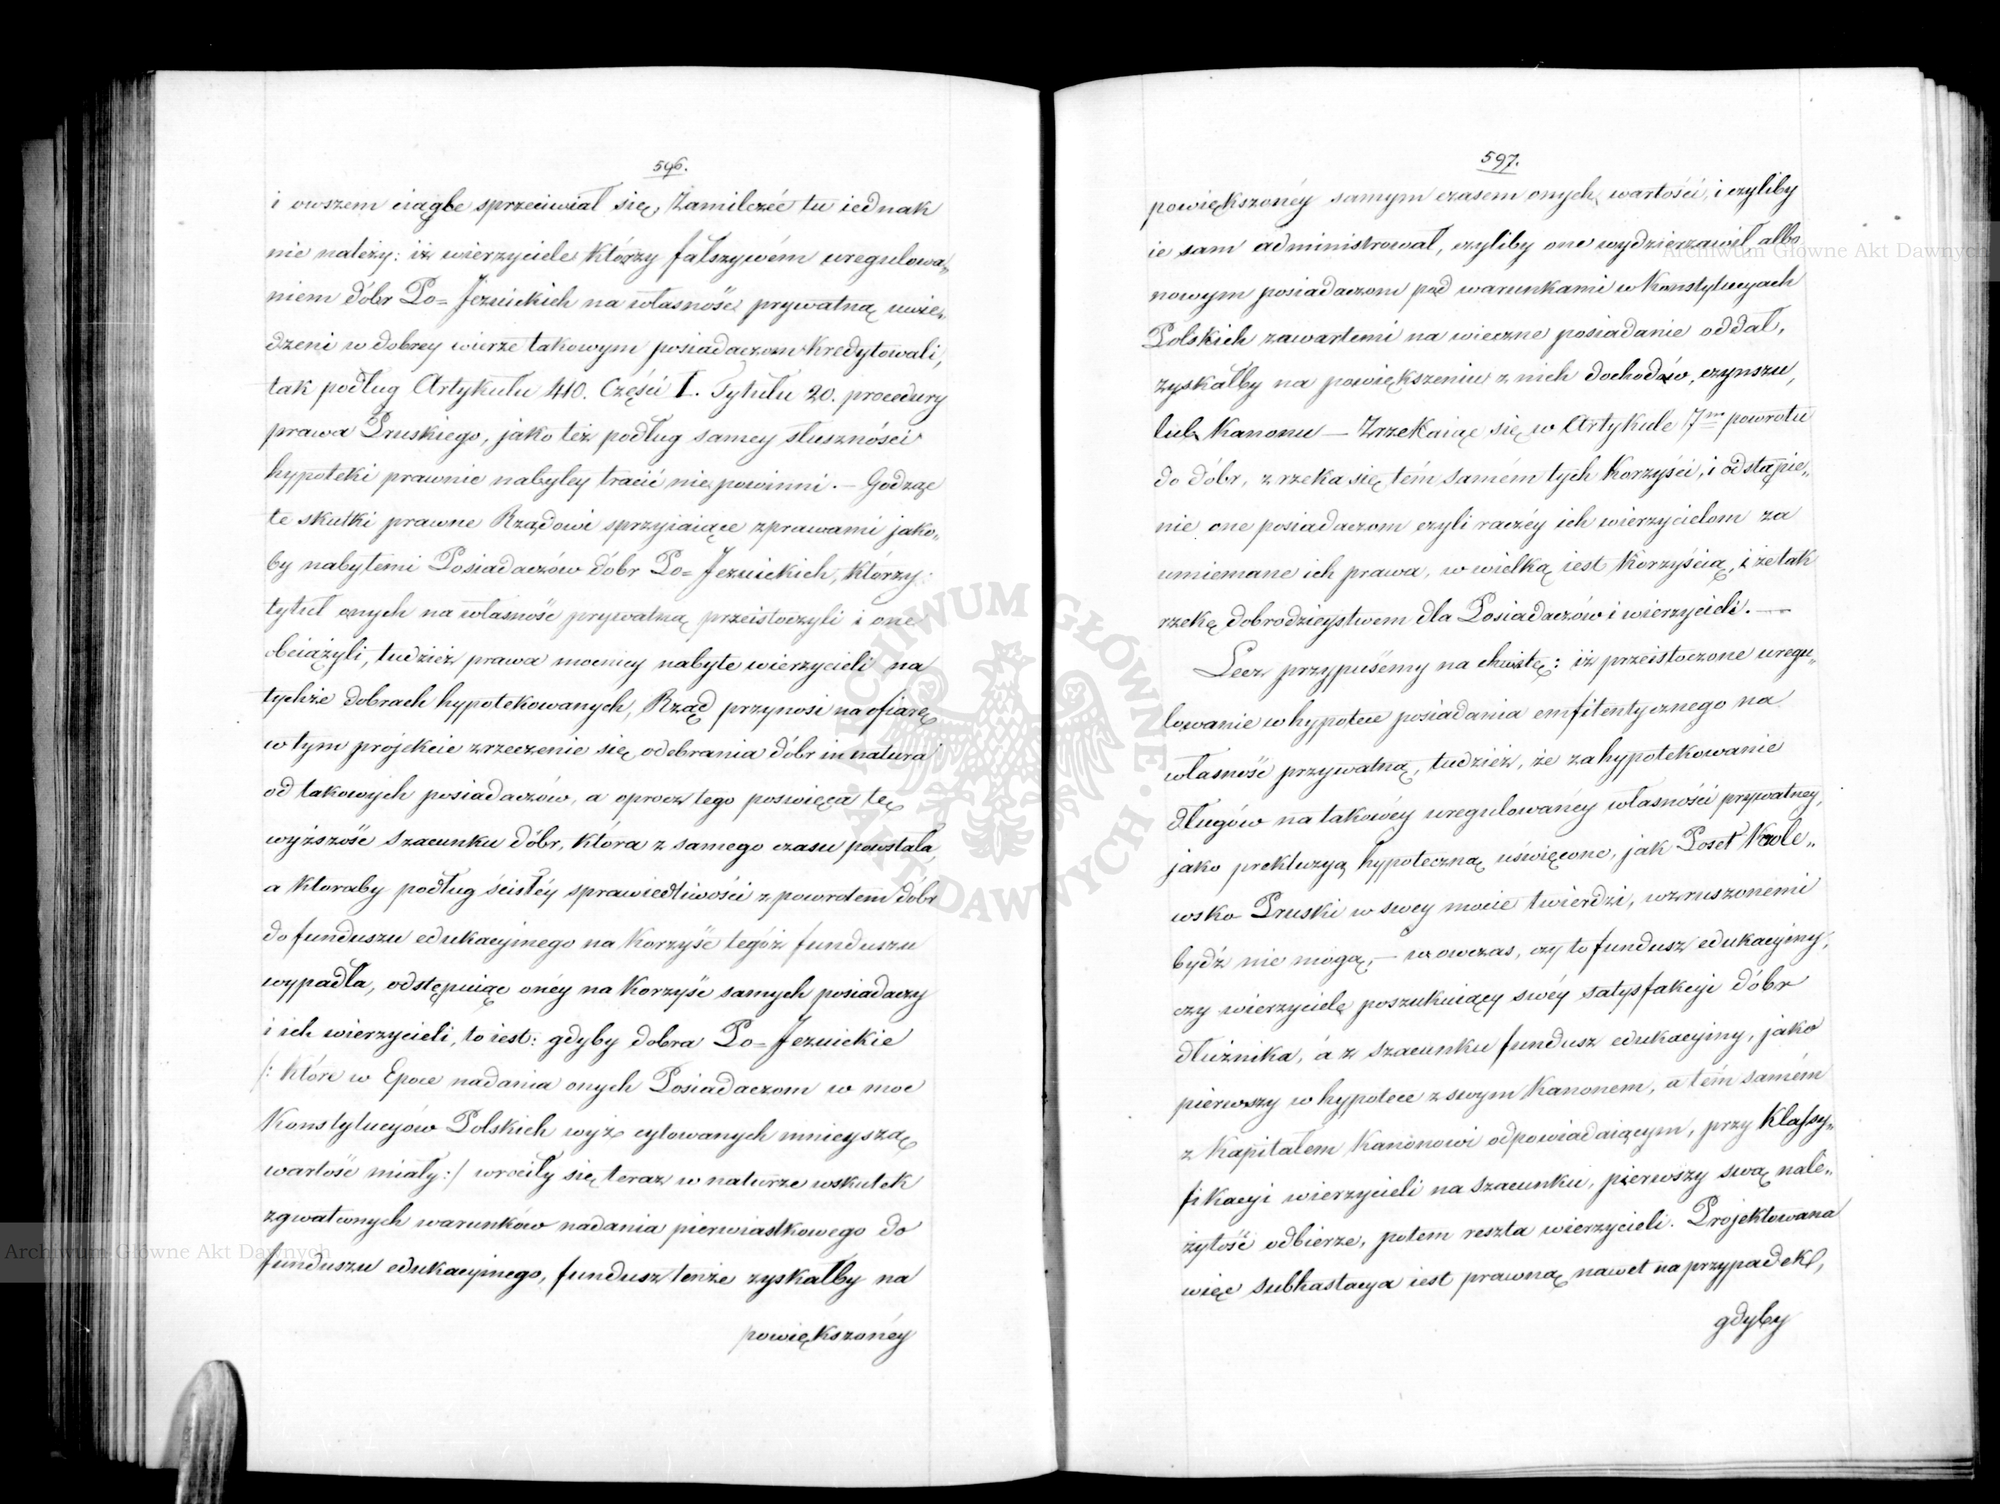 596.
i owszem ciągle sprzeciwiał się, Zamilczéć tu iednak
nie należy: iż wierzyciele którzy fałszywém uregulowa„
niem dóbr Po=Jezuickich na własność prywatną uwie„
dzeni w dobrey wierze takowym posiadaczom kredytowali,
tak podług Artykułu 410. Części I. Tytułu 20. procedury
prawa Pruskiego, jako też podług samey słuszności
hypoteki prawnie nabytey tracić nie powinni. — Godząc
te skutki prawne Rządowi sprzyiaiące z prawami jako„
by nabytemi Posiadaczów dóbr Po=Jezuickich, którzy
tytuł onych na własność prywatną przeistoczyli i one
obciążyli, tudzież prawa mocnicy nabyte wierzycieli na
tychże dobrach hypotekowanych, Rząd przynosi na ofiarę
w tym projekcie zrzeczenie się odebrania dóbr in natura
od takowych posiadaczów, a oprocz tego poswięca tę
wyższość szacunku dóbr, która z samego czasu powstała,
a ktoraby podług ścisłéy sprawiedliwości z powrotem dóbr
do funduszu edukacyinego na korzyść tegóż funduszu
wypadła, odstępuiąc onéy na korzyść samych posiadaczy
i ich wierzycieli, to iest: gdyby dobra Po=Jezuickie
/: które w Epoce nadania onych Posiadaczom w moc
Konstytucyów Polskich wyż cytowanych mnieyszą
wartość miały :/ wrociły się teraz w naturze wskutek
zgwałconych warunków nadania pierwiastkowego do
funduszu edukacyinego, fundusz tenże zyskałby na
powiększonéy
597.
powiększonéy samym czasem onych wartości, i czyliby
ie sam administrował, czyliby one wydzierzawił albo
nowym posiadaczom pod warunkami w Konstytucyach
Polskich zawartemi na wieczne posiadanie oddał,
zyskałby na powiększeniu z nich dochodów, czynszu,
lub Kanonu — Zrzekaiąc się w Artykule 7mo powrotu
do dóbr, zrzeka się tém samém tych korzyści, i odstąpie„
nie one posiadaczom czyli raczéy ich wierzycielom za
umiemane ich prawa, w wielką iest korzyścią, i że tak
rzekę dobrodzieystwem dla Posiadaczów i wierzycieli. —
Lecz przypuśćmy na chwilę: iż przeistoczone uregu„
lowanie w hypotece posiadania emfitentycznego na
własność przywatną, tudzież, że zahypotekowanie
długów na takowéy uregulowanéy własności prywatney,
jako prekluzyą hypoteczną uświęcone, jak Poseł Krole„
wsko Pruski w swey mocie twierdzi, wzruszonemi
bydź nie mogą, — wowczas, czy to fundusz edukacyiny,
czy wierzyciele poszukuiący swéy satysfakcyi dóbr
dłużnika, á z szacunku fundusz edukacyiny, jako
pierwszy w hypotece z swym Kanonem, a tém samém
z Kapitałem Kanonowi odpowiadaiącym, przy klassy„
fikacyi wierzycieli na szacunku, pierwszy swą nale„
żytość odbierze, potem reszta wierzycieli. Projektowana
więc subhastacya iest prawną nawet na przypadek,
gdyby
Archiwum Główne Akt Dawnych
Archiwum Główne Akt Dawnych
ARCHIWUM GŁÓWNE AKT DAWNYCH